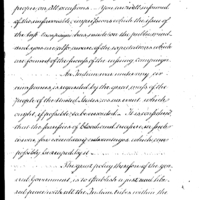 proper, on all occasions — You are well informed
of the unfavorable impressions which the issue of
the last Campaign has made on the public mind
and you are also aware of the expectations which
are formed of the success of the ensuing campaign
An Indian war under any cir
cumstances, is regarded by the great mass of the
People of the United States as an event which
ought, if possible to be avoided. It is considered
that the sacrifices of blood and treasure in such
a war far exceed any advantages which can
possibly be reaped by it.
The great policy therefore of the gene
ral Government, is to establish a just and libe
ral peace with all the Indian tribes within the